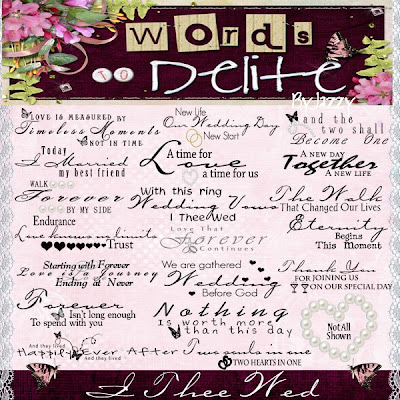 Words
TO
Delite
By Jazzy
LOVE IS MEASURED BY
Timeless Moments
NOT IN TIME
New Life
Our Wedding Day
New Start
and the
two shall
Become One
Today
I Married
my best friend
A time for
Love
a time for us
A NEW DAY
Together
A NEW LIFE
WALK
Forever
BY MY SIDE
With this ring
Wedding Vows
I Thee Wed
The Walk
That Changed Our Lives
Endurance
Love knows no limits
Trust
Love That
Forever
Continues
Eternity
Begins
This Moment
Starting with Forever
Love is a Journey
Ending at Never
We are gathered
Wedding
Before God
Thank You
FOR JOINING US
ON OUR SPECIAL DAY
Forever
Isn't long enough
To spend with you
Nothing
is worth more
than this day
Not All
Shown
And they lived
Happily Ever After
And they lived
Two souls in one
TWO HEARTS IN ONE
I Thee Wed